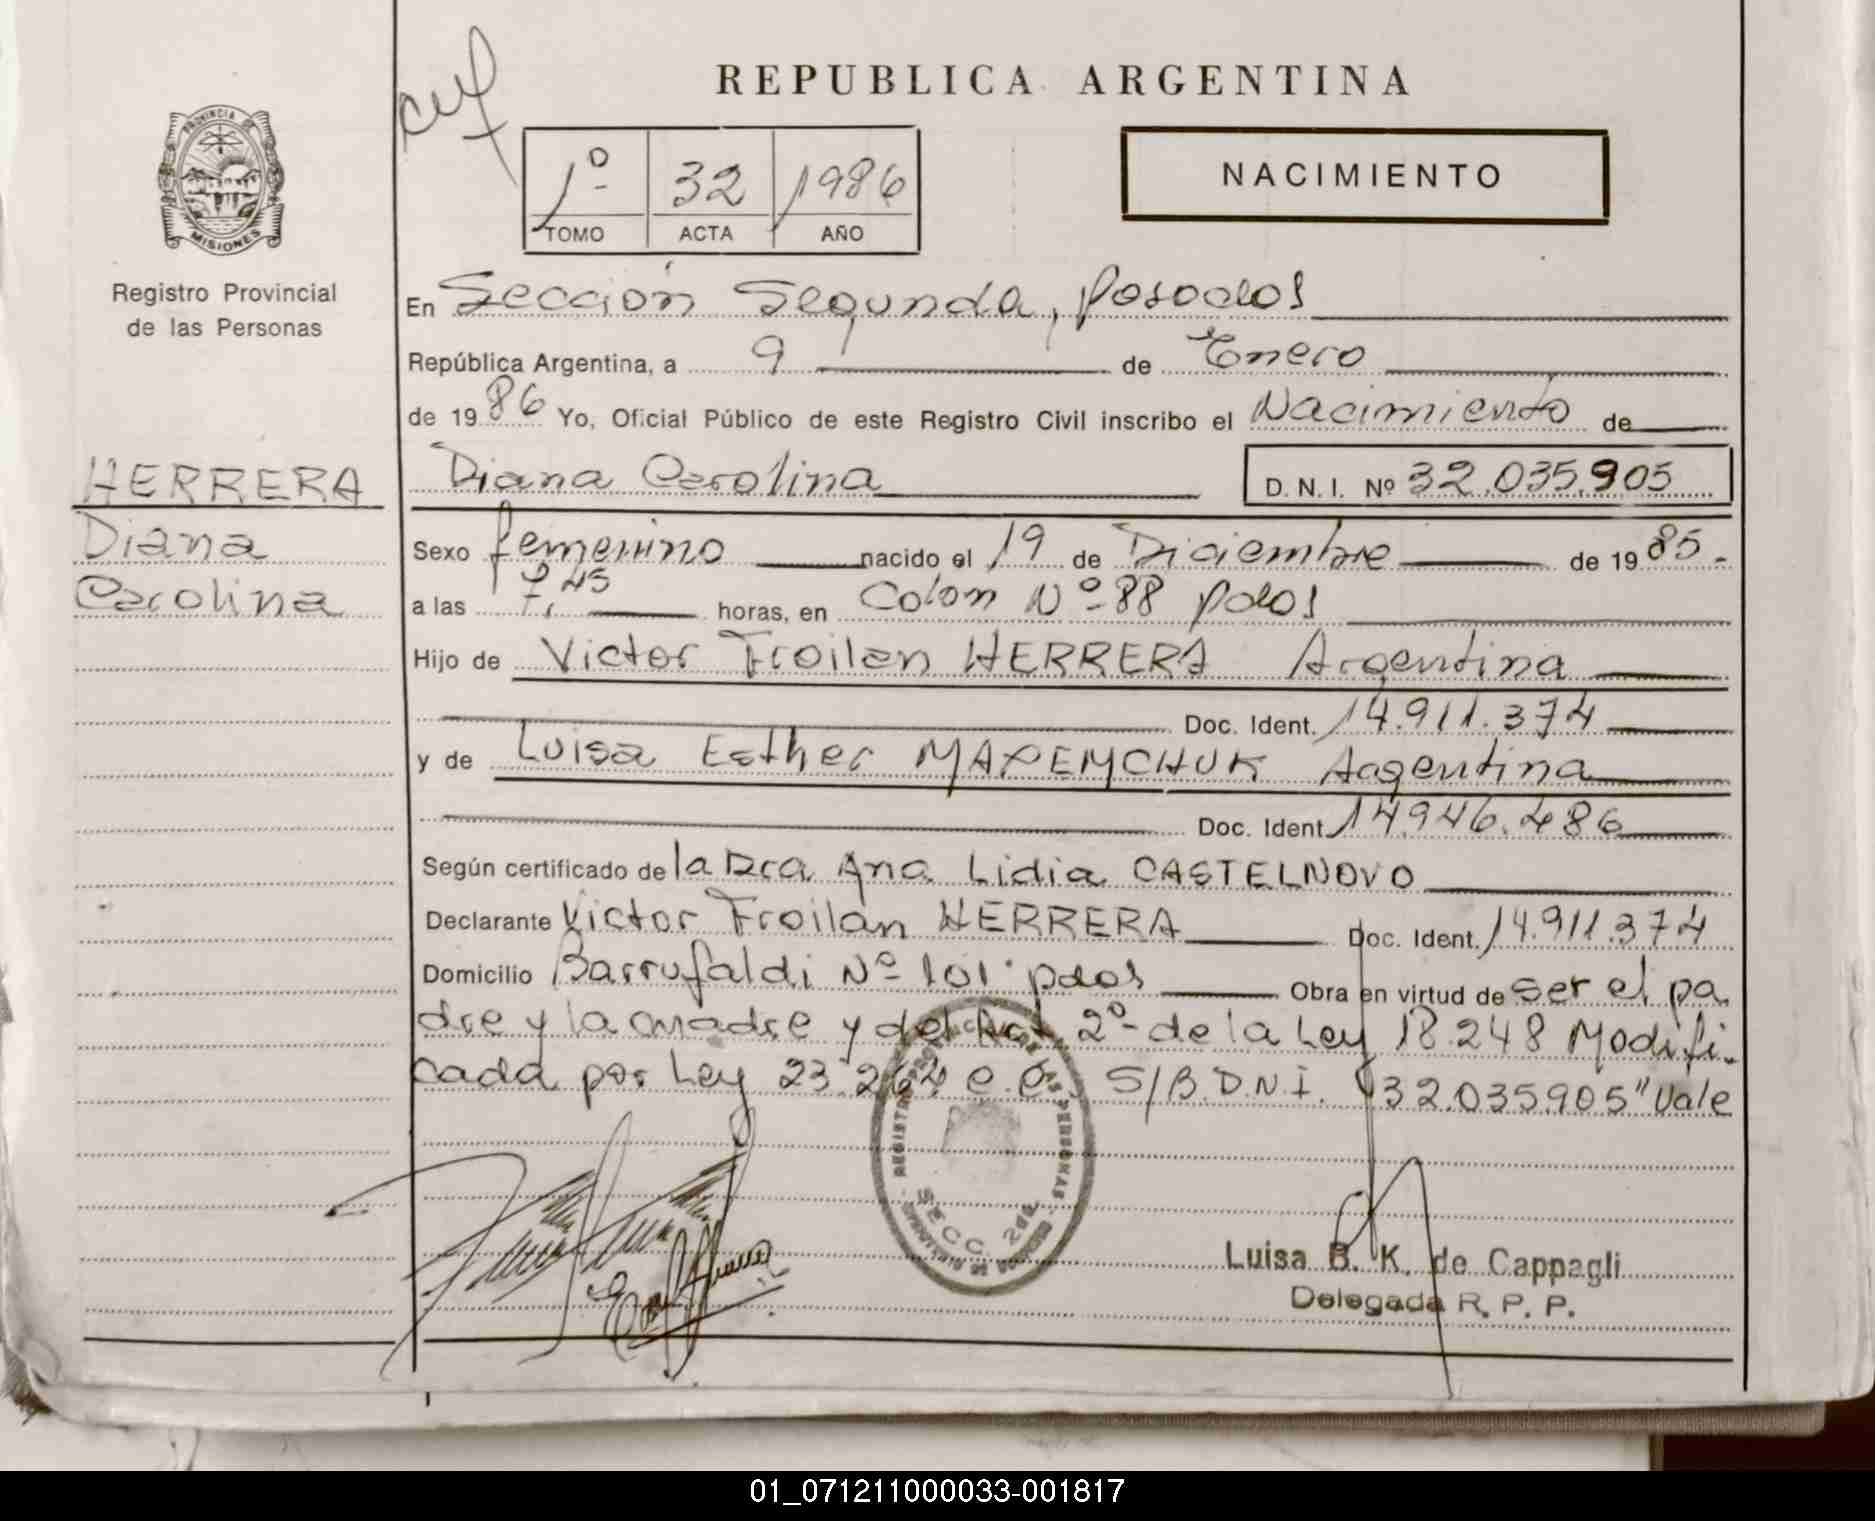 REPUBLICA ARGENTINA
PROVINCIA DE
MISIONES
Registro Provincial
de las Personas
1º 32 1986
TOMO ACTA AÑO
NACIMIENTO
En Sección Segunda, Posadas
República Argentina, a 9 de Enero
de 1986 Yo, Oficial Público de este Registro Civil inscribo el Nacimiento de
HERRERA
Diana
Carolina
Diana Carolina D. N. I. Nº 32.035.905
Sexo femenino nacido el 19 de Diciembre de 1985.-
a las 7,45 horas, en Colon Nº 88 pdas
Hijo de Victor Froilan HERRERA Argentina
Doc. Ident. 14.911.374
y de Luisa Esther MAXEMCHUK Argentina
Doc. Ident. 14.946.486
Según certificado de la Dra Ana Lidia CASTELNOVO
Declarante Victor Froilan HERRERA Doc. Ident. 14.911.374
Domicilio Barrufaldi Nº 101 pdas Obra en virtud de ser el pa
dre y la madre y del Art 2º de la Ley 18.248 Modifi-
cada por Ley 23.264 S/B. D.N.I. 32.035.905" Vale
SECC. 2da.
Luisa B. K. de Cappagli
Delegada R. P. P.
01_071211000033-001817